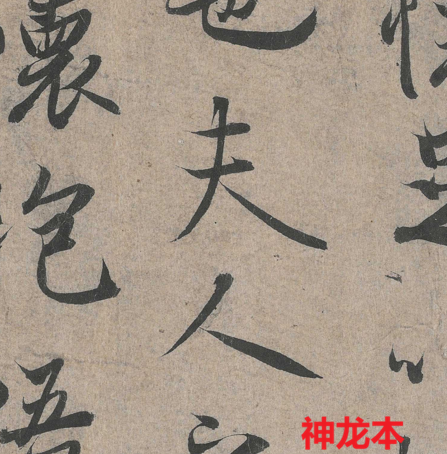 足以
也夫人之
懷抱悟
神龙本